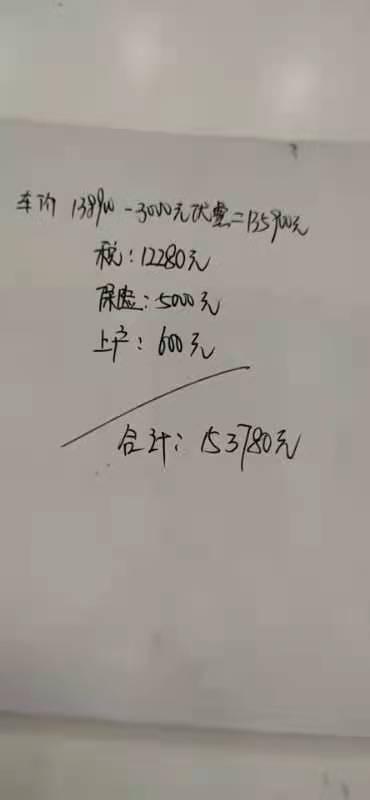 车价 138900-3000元优惠=135900元
税:12280元
保险:5000元
上户:600元
合计:153780元